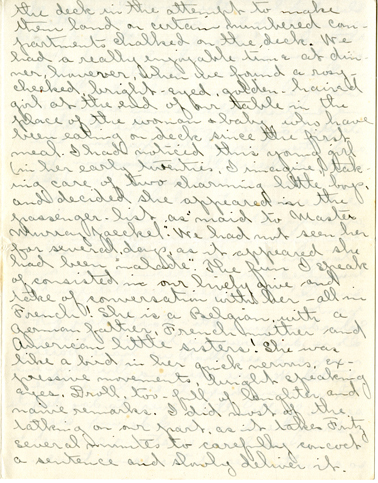 the deck in the attempt to make
them land on certain numbered com-
partments chalked on the deck. We
had a really enjoyable time at din-
ner, however, when we found a rosy-
cheeked, bright-eyed, golden-haired
girl at the end of our table in the
place of the woman & baby who have
been eating on deck since the first
meal. I had noticed this young girl
(in her early twenties, I imagine) tak-
ing care of two charming little boys,
and decided she appeared in the
passenger-list as "maid to Master
Murray Jaeckel." We had not seen her
for several days, as it appeared she
had been "malade". The fun I speak
of consisted in our lively give and
take of conversation with her - all in
French! She is a Belgian, with a
German father, French mother and
American little sisters! She was
like a bird in her quick nervous, ex-
pressive movements, bright speaking
eyes. Droll, too - full of laughter and
naive remarks. I did most of the
talking on our part, as it takes Fritz
several minutes to carefully concoct
a sentence and slowly deliver it.